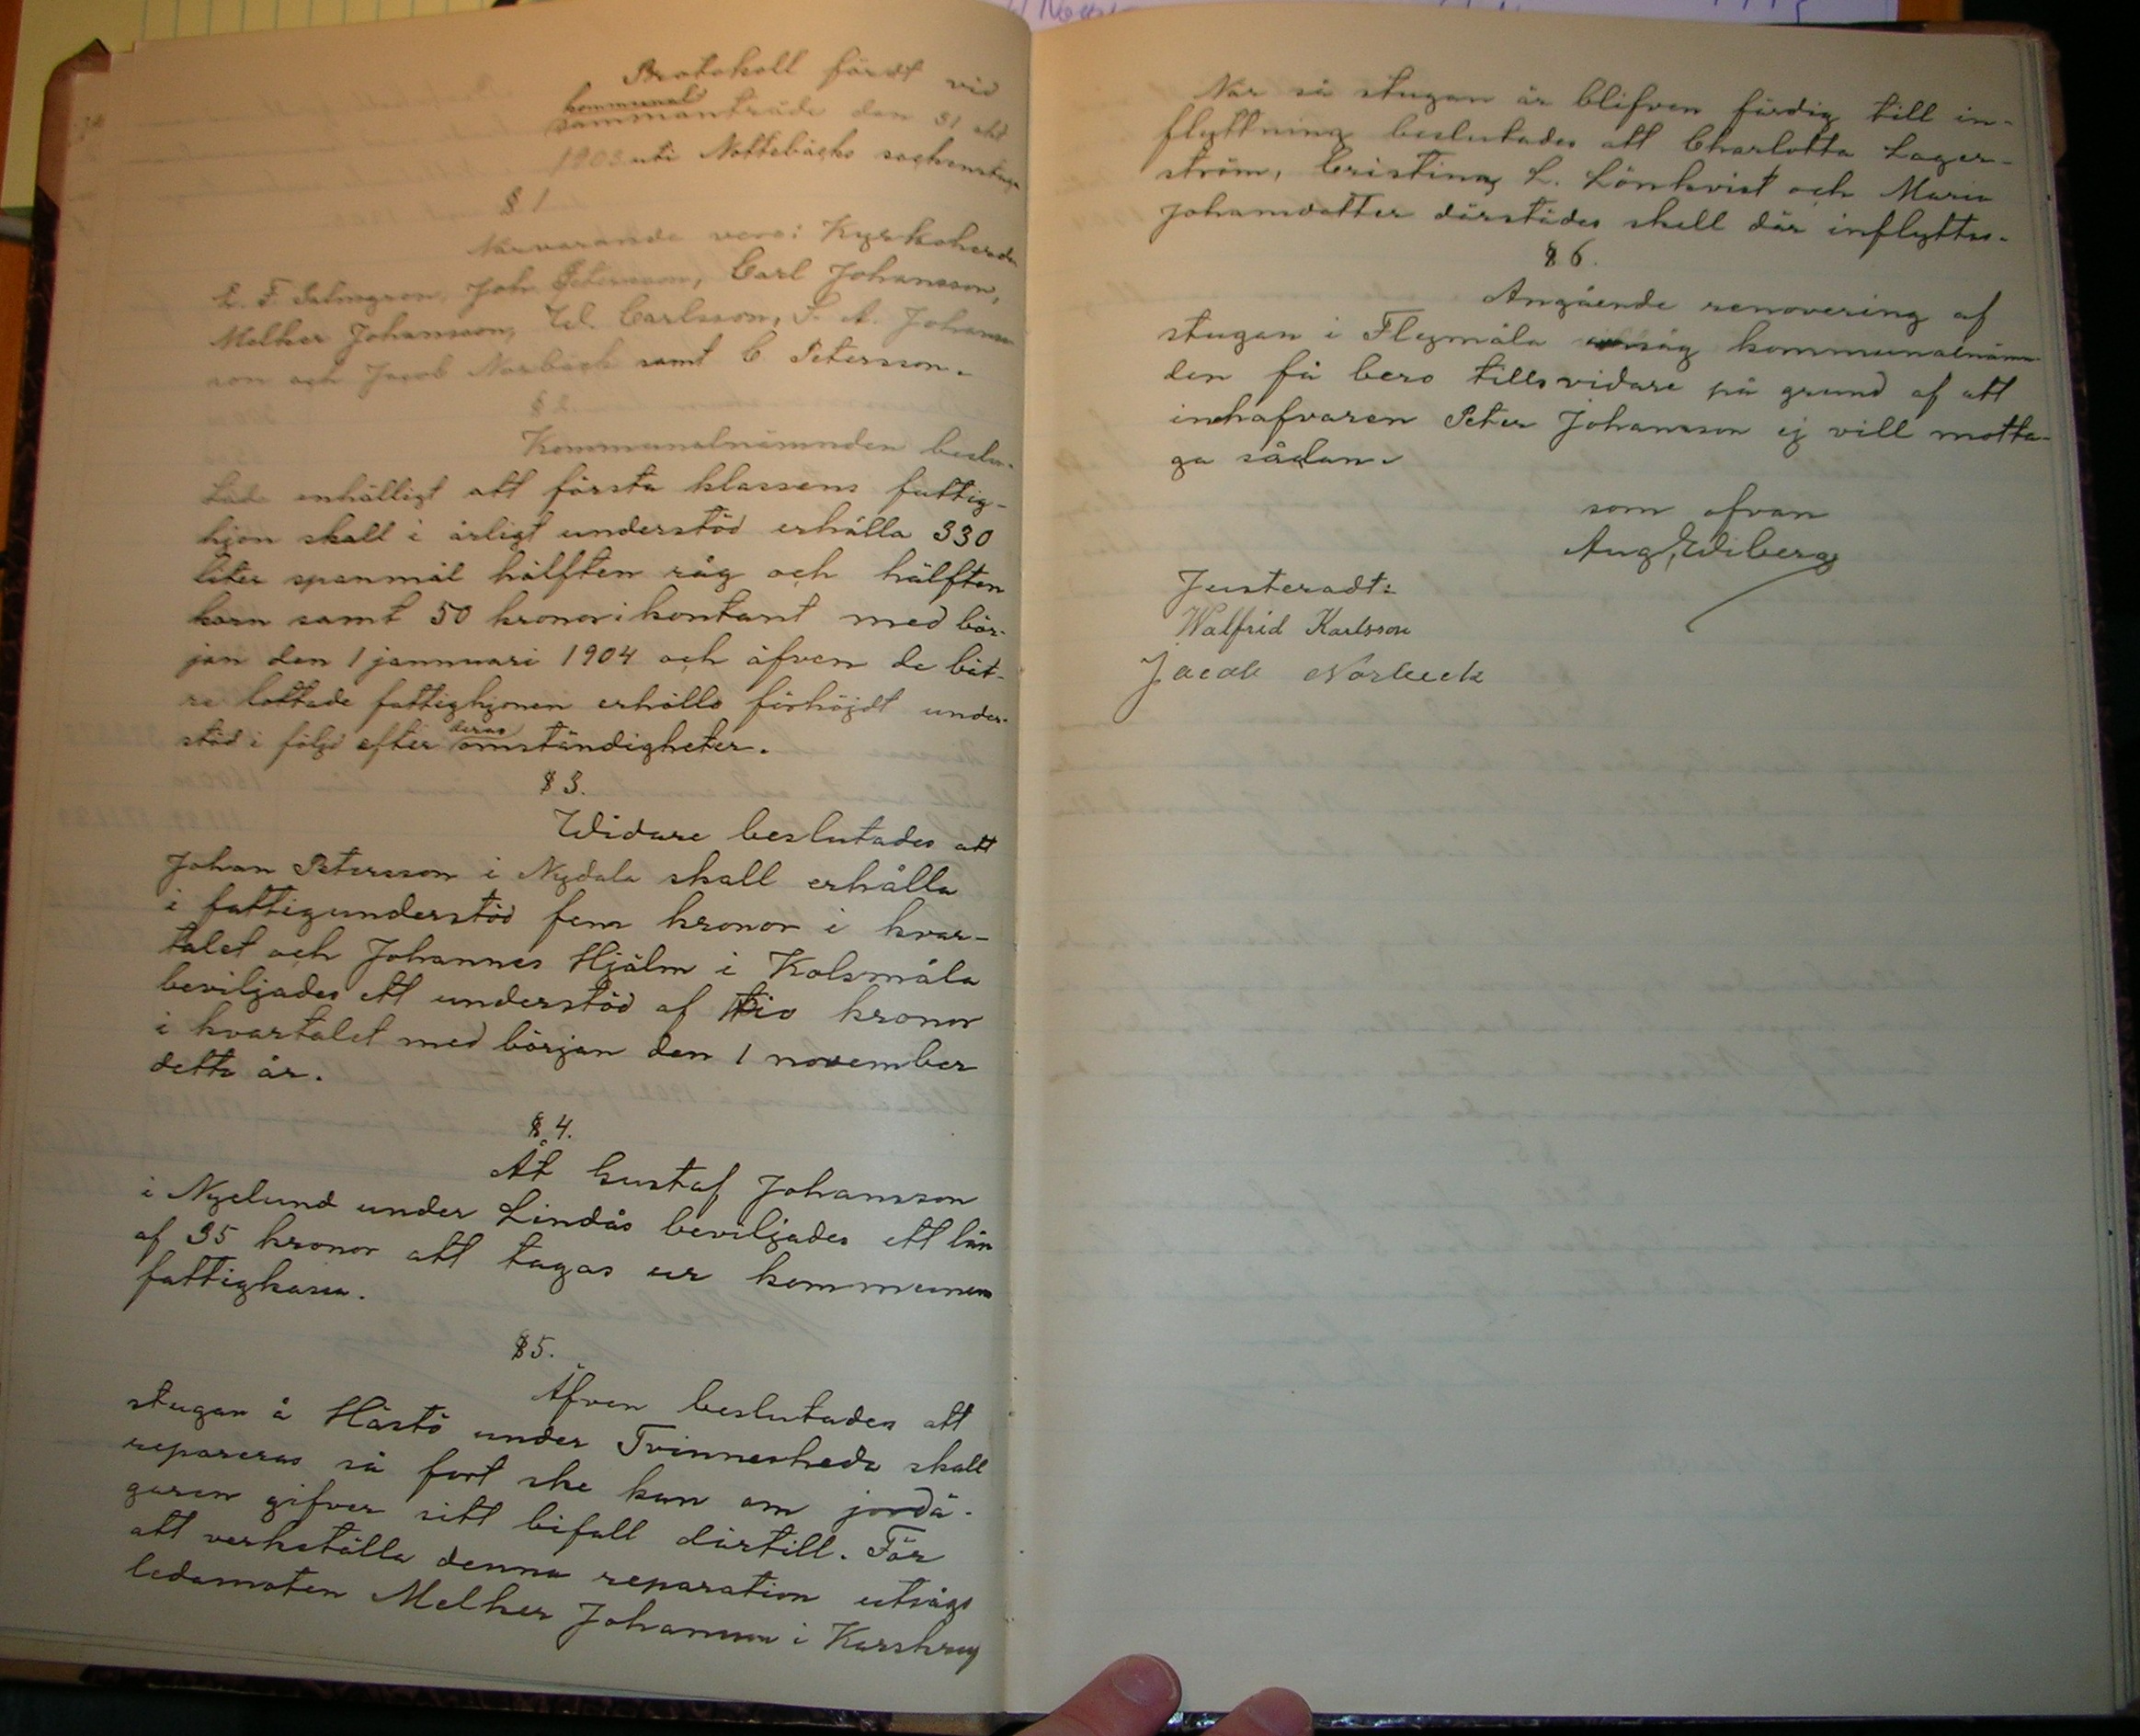 Protokoll fördt vid
kommunal
sammanträde den 31 okt
1903 uti Nottebäcks sockenstuga
§ 1
Närvarande voro: Kyrkoherde
E. F. Palmgren, Joh Peterson, Carl Johansson,
Melker Johansson, W. Carlsson, S. A. Johans
son och Jacob Norbäck samt C. Petersson.
§ 2.
Kommunalnämnden beslu-
tade enhälligt att första klassens fattig-
hjon skall i årligt understöd erhålla 330
liter spanmål hälften råg och hälften
korn samt 50 kronor i kontant med bör-
jan den 1 jannuari 1904 och äfven de bät-
re lottade fattighjonen erhålla förhöjdt under-
stöd i följd efter deras omständigheter.
§ 3.
Widare beslutades att
Johan Petersson i Nydala skall erhålla
i fattigunderstöd fem kronor i kvar-
talet och Johannes Hjälm i Kolsmåla
beviljades ett understöd af tio kronor
i kvartalet med början den 1 november
detta år.
§ 4.
Åt Gustaf Johansson
i Nyelund under Lindås beviljades ett lån
af 35 kronor att tagas ur kommunens
fattigkassa.
§ 5.
Äfven beslutades att
stugan å Hästö under Tvinnesheda skall
repareras så fort ske kan om jordä-
garen gifver sitt bifall därtill. För
att verkställa denna reparation utsågs
ledamoten Melker Johansson i Karskruv
När så stugan är blifven färdig till in-
flyttning beslutades att Charlotta Lager-
ström, Cristina L. Lönkvist och Maria
Johansdotter därstädes skall där inflyttas.
§ 6.
Angående renovering af
stugan i Flymåla ansåg kommunalnämn-
den få bero tillsvidare på grund af att
inehafvaren Peter Johansson ej vill motta-
ga sådan.
som ofvan
Aug. Wiberg
Justeradt:
Walfrid Karlsson
Jacob Norbeck